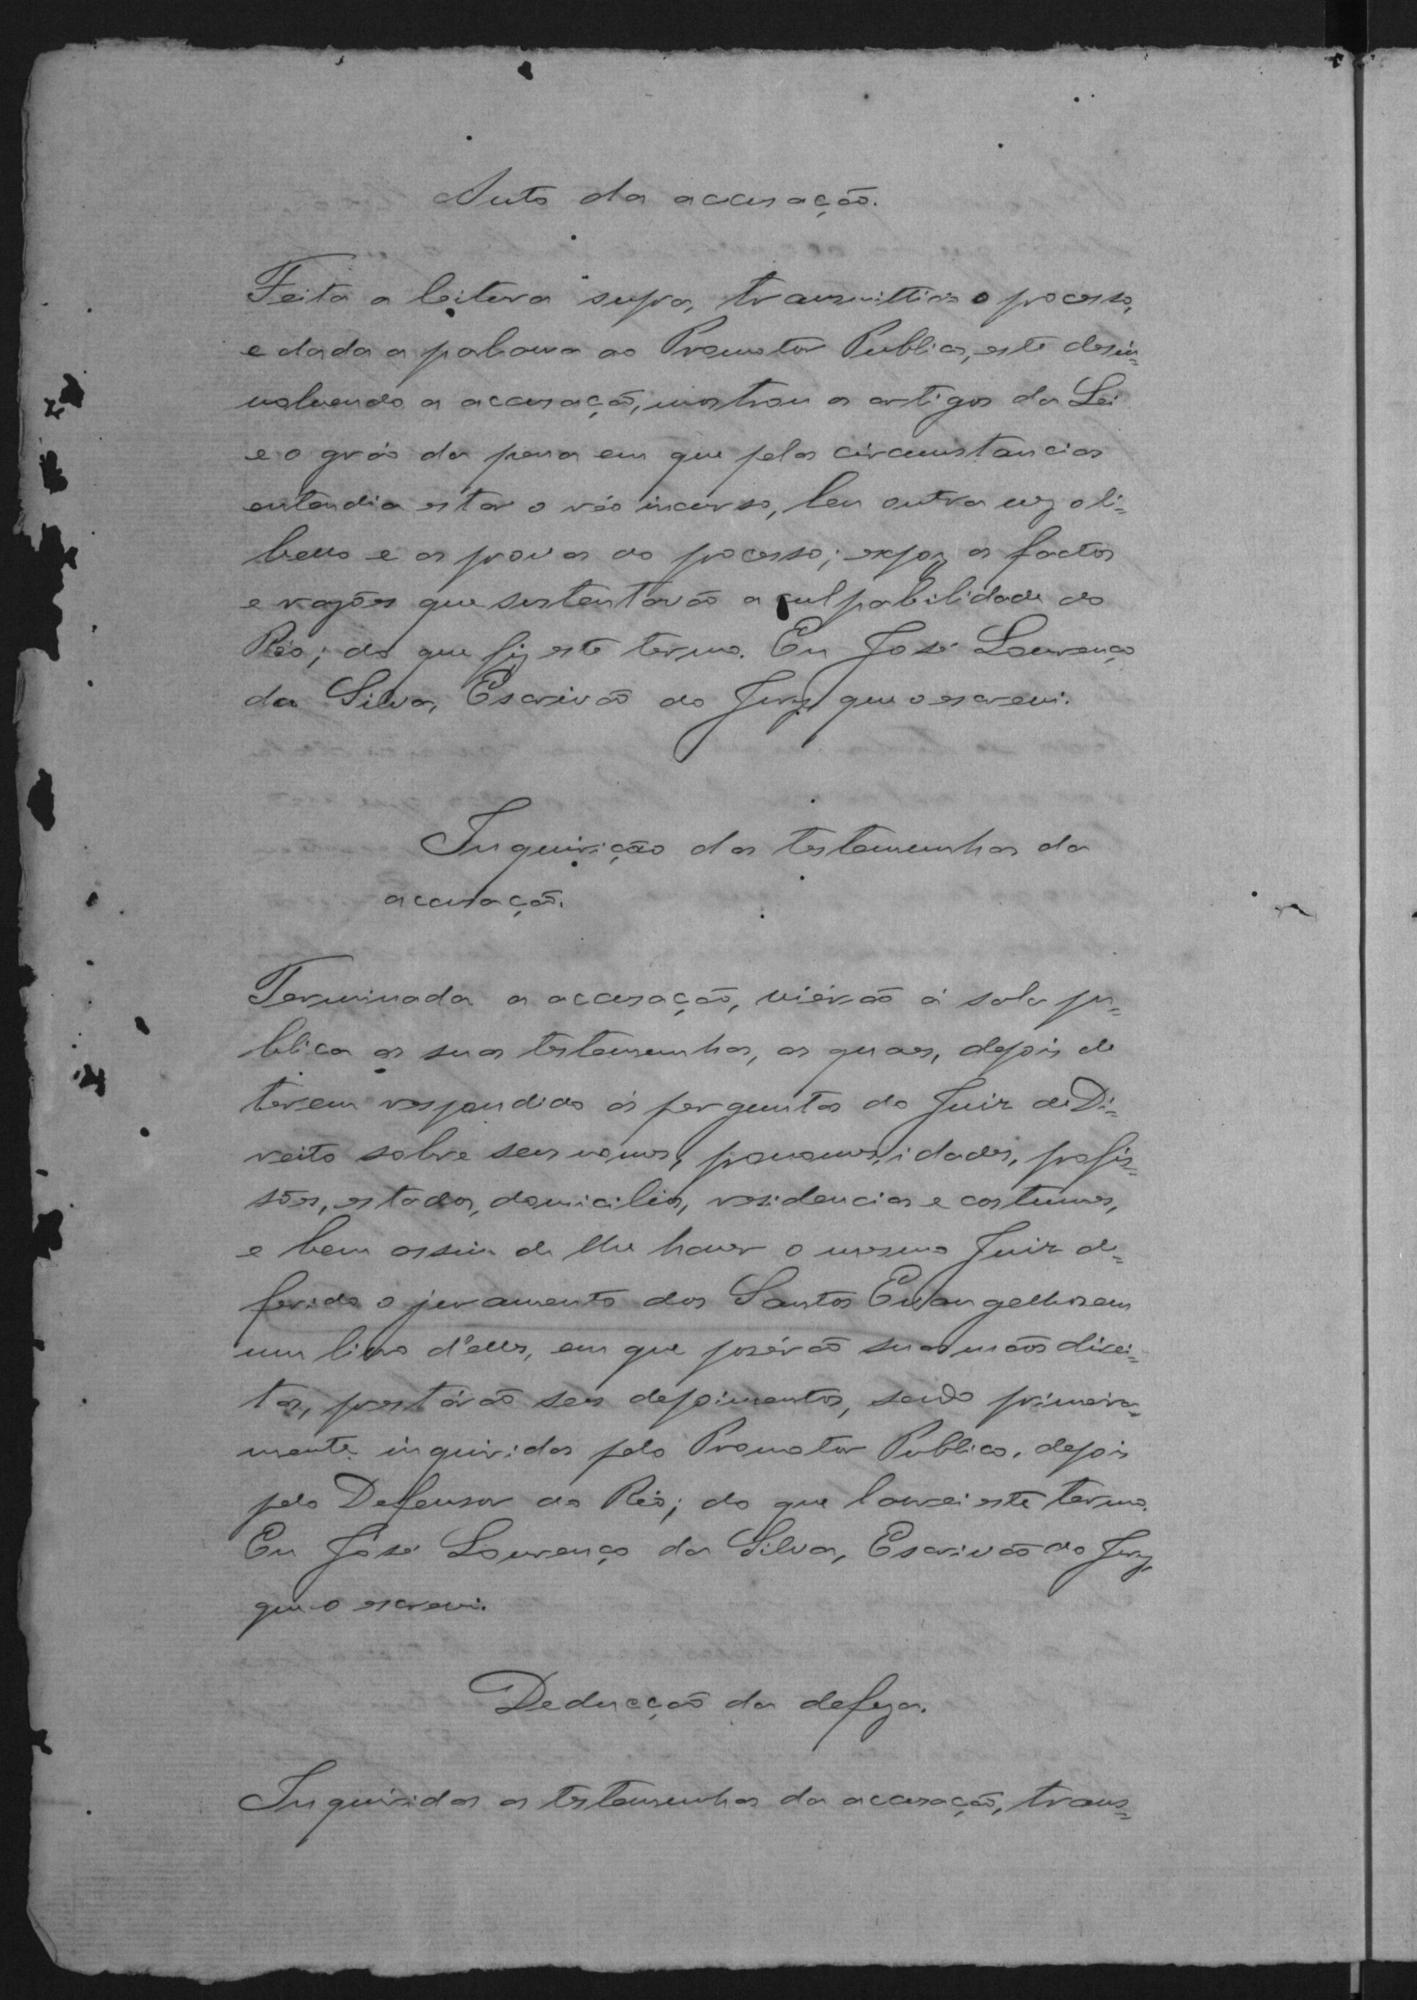 Auto da accusação.
Feita a leitura supra, transmittirão o processo,
e dada a palavra ao Promotor Publico, este desin=
volvendo a accusação, mostrou os artigos da Lei
e o gráo da pena em que pelas circumstancias
entendia estar o réo incurso, leu outra vez o li=
bello e as provas do processo; expoz os factos
e razões que sustentavão a culpabilidade do
Réo; do que fiz este termo. Eu José Lourenço
da Silva, Escrivão do Jury que o escrevi.
Inquirição das testemunhas da
accusação.
Terminada a accusação, viérão á sala pu=
blica as suas testemunhas, as quaes, depois de
terem respondido ás perguntas do Juiz de Di=
reito sobre seus nomes, pronomes, idades, profis=
sões, estados, domicilios, residencias e costumes,
e bem assim de lhe haver o mesmo Juiz de=
ferido o juramento dos Santos Evangelhos em
um livro d'elles, em que posérão suas mãos direi=
tas, prestárão seus depoimentos, sendo primeira=
mente inquiridas pelo Promotor Publico, depois
pelo Defensor do Réo; do que lavrei este termo.
Eu José Lourenço da Silva, Escrivão do Jury,
que o escrevi.
Deducção da defeza.
Inquiridas as testemunhas da accusação, trans=